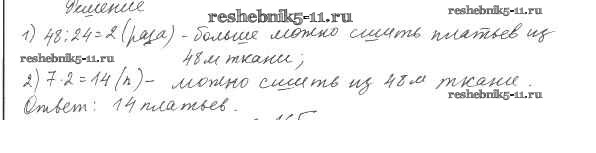 Решение
reshebnik5-11.ru
reshebnik5-11.ru
1) 48:24=2(раза) - больше можно сшить платьев из
reshebnik5-11.ru
48м ткани;
2) 7·2=14(п)- можно сшить из 48м ткани.
reshebnik5-11.ru
Ответ: 14 платьев.